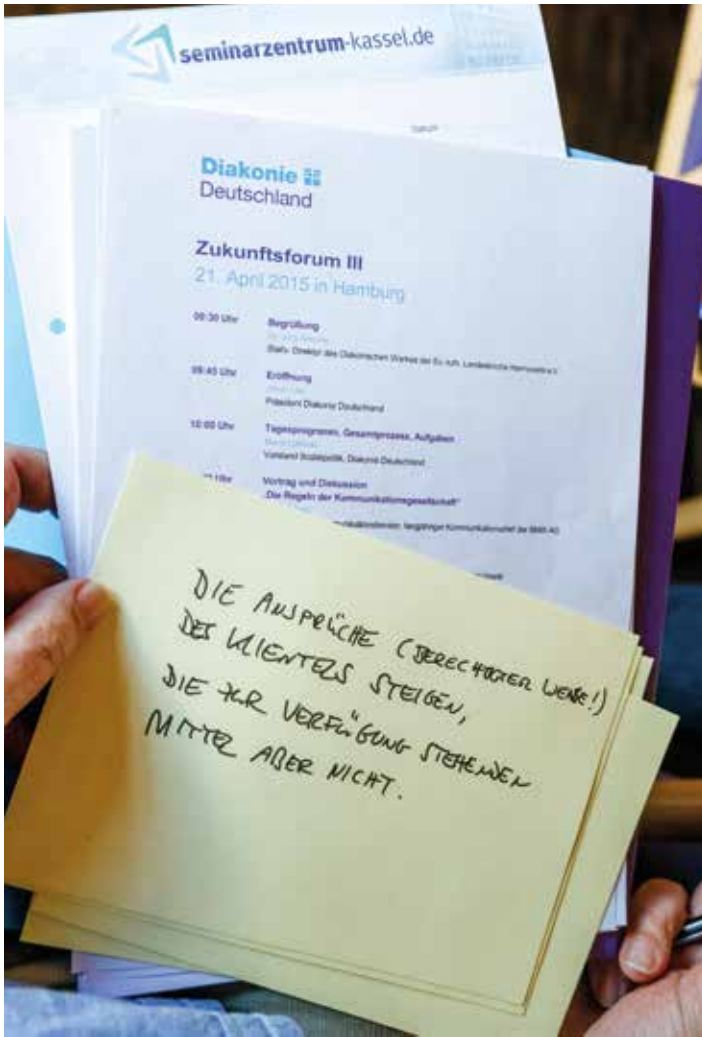 seminarzentrum-kassel.de
Datum
Diakonie
Deutschland
Zukunftsforum III
21. April 2015 in Hamburg
09:30 Uhr Begrüßung
Stellv. Direktor des Diakonischen Werkes der Ev.-luth. Landeskirche Hannovers e.V.
09:45 Uhr Eröffnung
Präsident Diakonie Deutschland
10:00 Uhr Tagesprogramm, Gesamtprozess, Aufgaben
Vorstand Sozialpolitik, Diakonie Deutschland
Uhr Vortrag und Diskussion
„Die Regeln der Kommunikationsgesellschaft“
langjähriger Kommunikationschef der BMW AG
DIE ANSPRÜCHE (BERECHTIGTER WEISE!)
DES KLIENTELS STEIGEN,
DIE ZUR VERFÜGUNG STEHENDEN
MITTEL ABER NICHT.